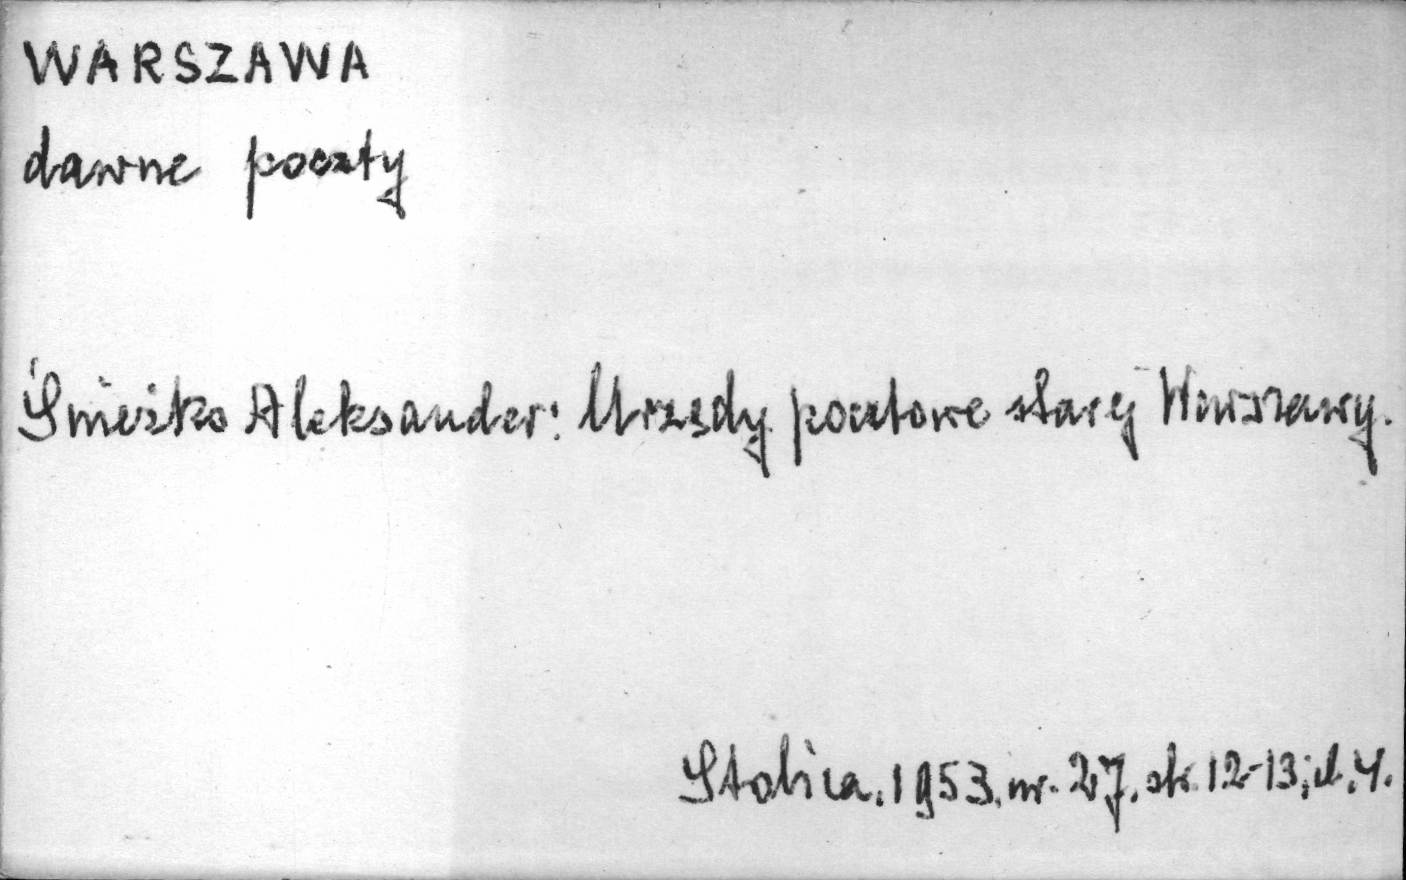 WARSZAWA
dawne poczty
Śnieżko Aleksander: Urzędy pocztowe starej Warszawy.
Stolica. 1953. nr. 27. str. 12-13; il. 4.